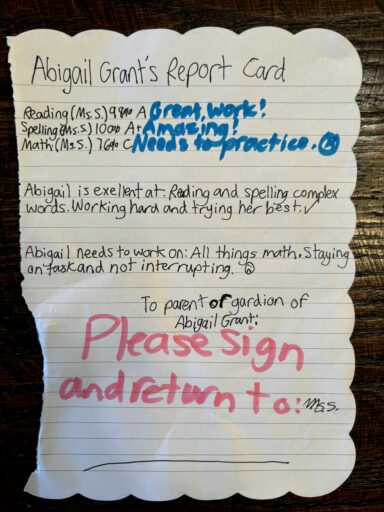 Abigail Grant's Report Card
Reading (Ms. S.) 98% A Great work!
Spelling (Ms. S.) 100% A+ Amazing!
Math (Ms. S.) 76% C Needs to practice.
Abigail is exellent at: Reading and spelling complex
words. Working hard and trying her best. ✓
Abigail needs to work on: All things math. Staying
on task and not interrupting.
To parent or gardion of
Abigail Grant:
Please sign
and return to: Ms. S.